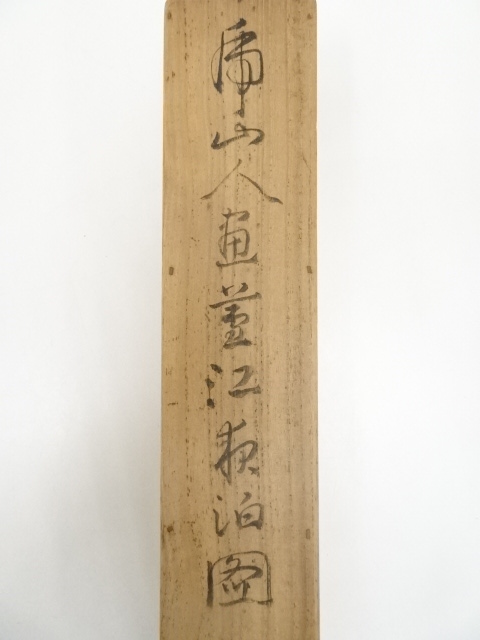 帋山人画蘆江夜泊図